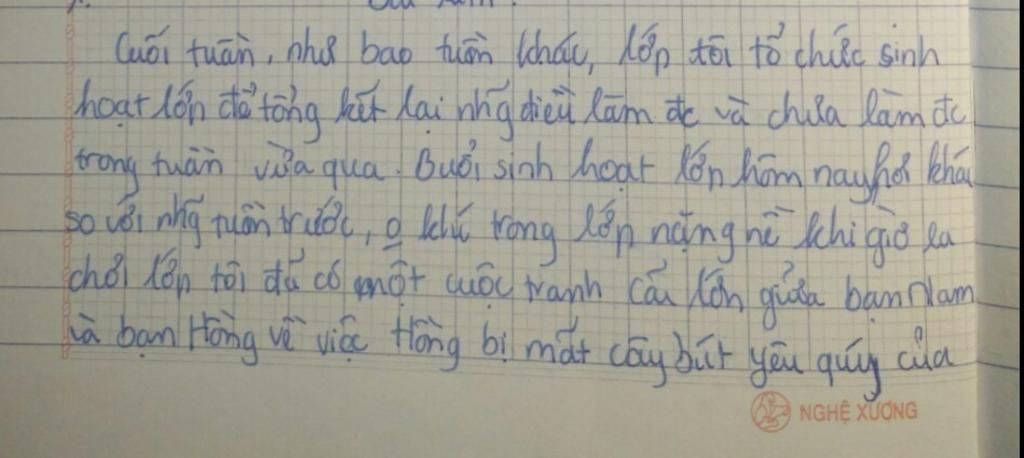 Cuối tuần, như bao tuần khác, lớp tôi tổ chức sinh
hoạt lớp để tổng kết lại nhg điều làm đc và chưa làm đc
trong tuần vừa qua. Buổi sinh hoạt lớp hôm nay hơi khác
so với nhg tuần trước, o khí trong lớp nặng nề khi giờ ra
chơi lớp tôi đã có một cuộc tranh cãi lớn giữa bạn Nam
và bạn Hồng về việc Hồng bị mất cây bút yêu quý của
NGHỆ XƯƠNG